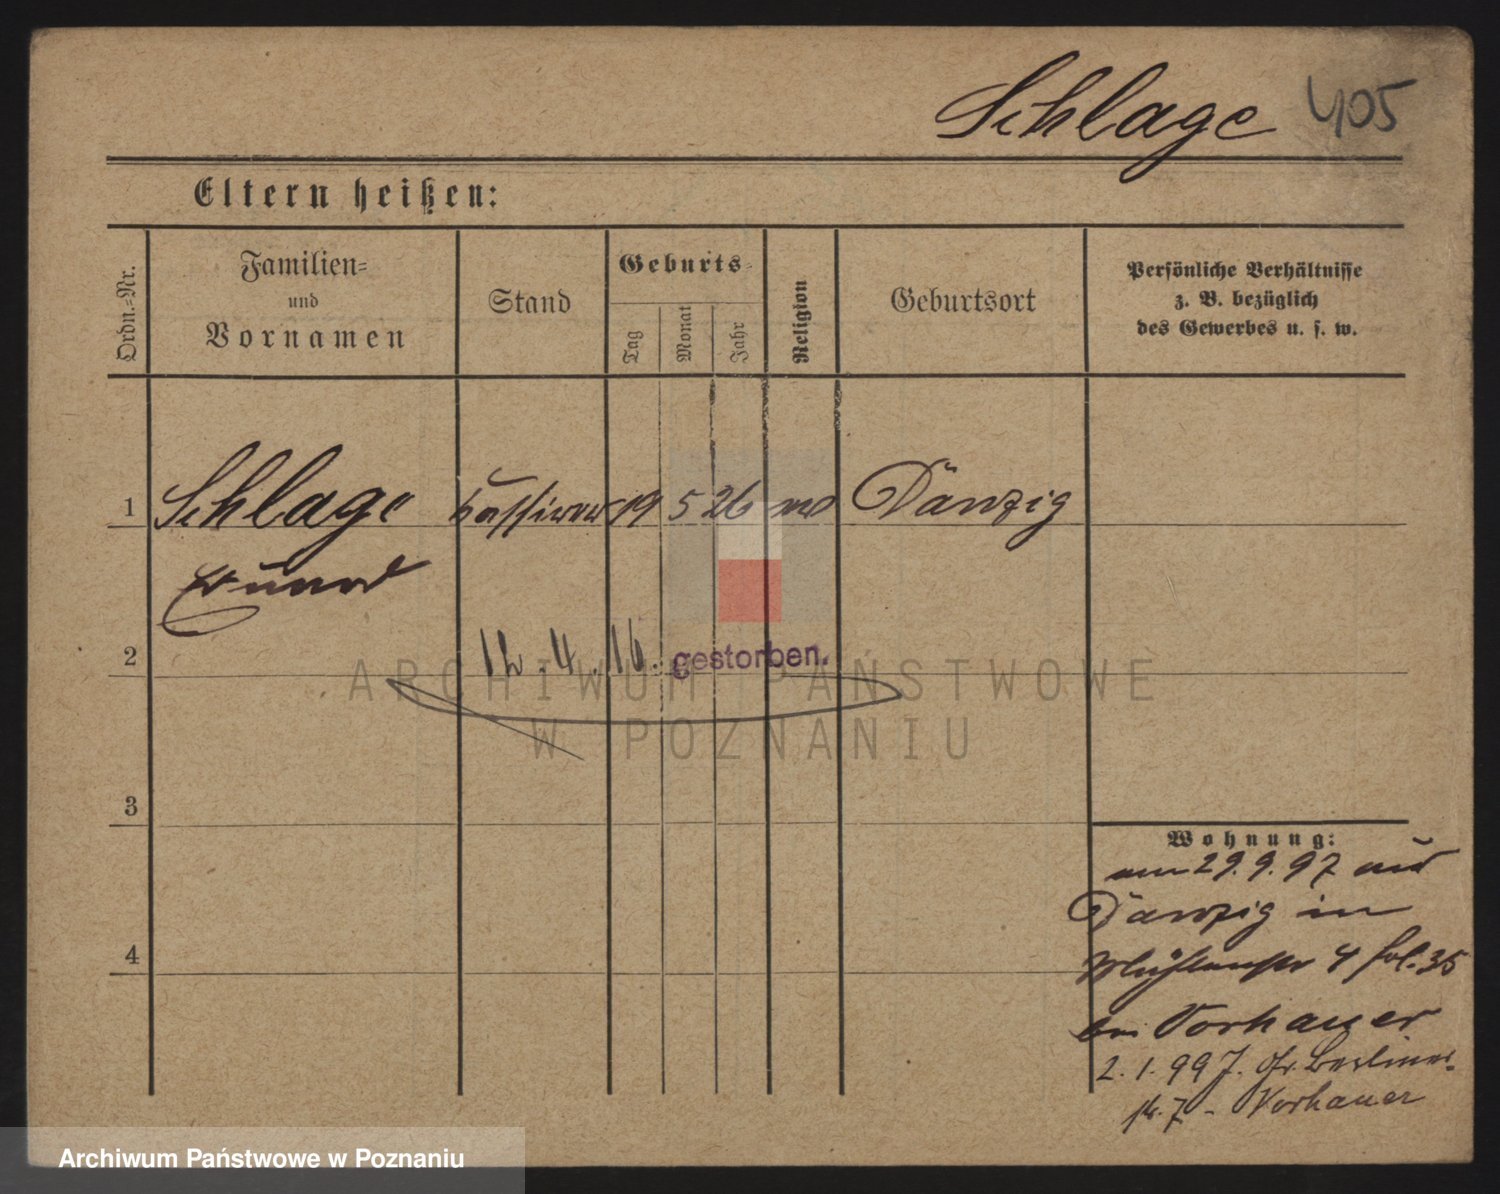 Schlage 405
Eltern heißen:
Ordn.-Nr.
Familien-
und
Vornamen
Stand
Geburts-
Tag
Monat
Jahr
Religion
Geburtsort
Persönliche Verhältnisse
z. B. bezüglich
des Gewerbes u. s. w.
1 Schlage 19 5 26 Danzig
2
12.4.16. gestorben.
ARCHIWUM PAŃSTWOWE
W POZNANIU
3
Wohnung:
29.9.97 aus
Danzig in
4
Mühlenstr 4 fol. 35
bei Vorhauer
2. 1. 99 J. Gr. Berliner-
str. 7 - Vorhauer
Archiwum Państwowe w Poznaniu